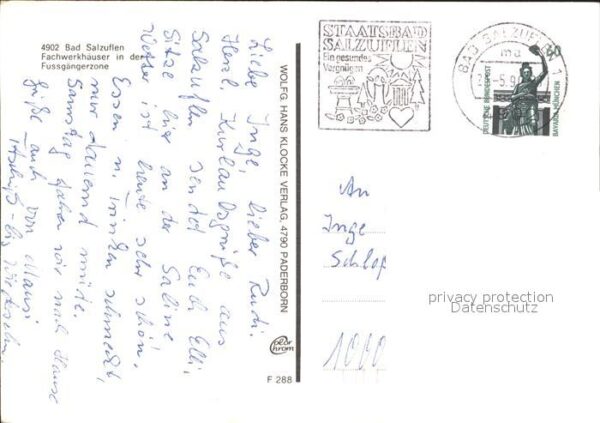 4902 Bad Salzuflen
Fachwerkhäuser in der
Fussgängerzone
Liebe Inge, lieber Rudi.
Herzl. Kurlaubsgrüße aus
Salzuflen sendet Euch Elli,
Sitze hier an der Saline,
Wetter ist heute sehr schön,
Essen u. Trinken schmeckt,
nur dauernd müde.
Samstag fahren wir nach Hause
Grüße auch von Mausi
Tschüß - bis Wiedersehn.
WOLFG. HANS KLOCKE VERLAG, 4790 PADERBORN
color
chrom
F 288
STAATSBAD
SALZUFLEN
Ein gesundes
Vergnügen
BAD SALZUFLEN 1
-5.9
60
DEUTSCHE BUNDESPOST
BAVARIA MÜNCHEN
An
Inge
Schlop
1000
privacy protection
Datenschutz